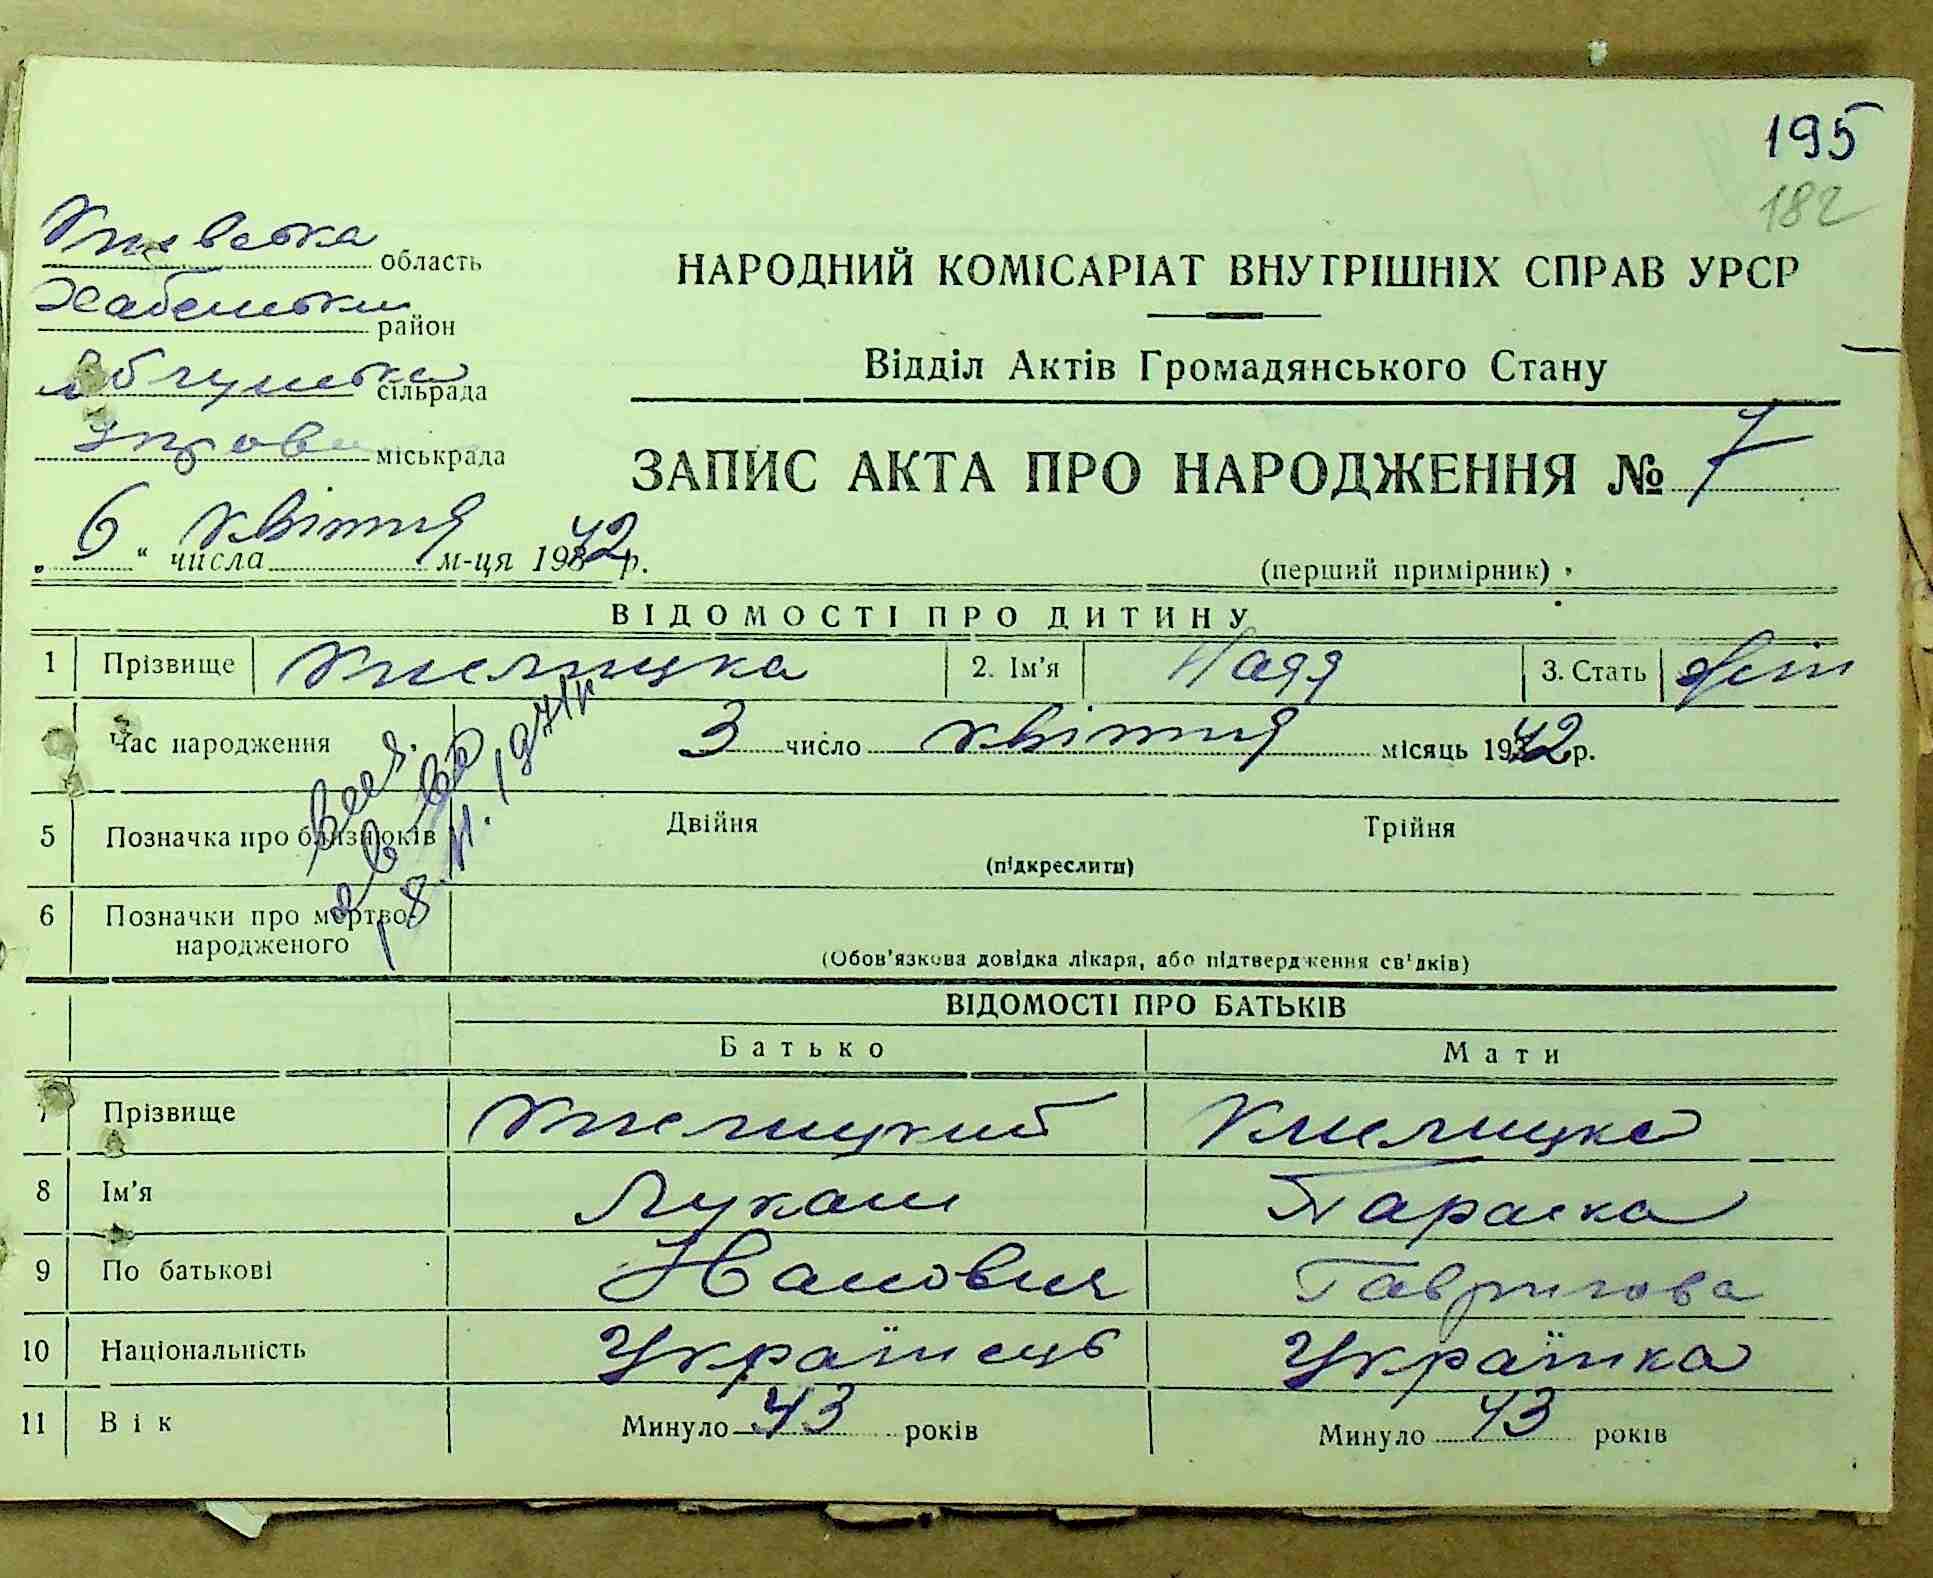 195
182
Київська область
Хабенський район
сільрада
міськрада
НАРОДНИЙ КОМІСАРІАТ ВНУТРІШНІХ СПРАВ УРСР
Відділ Актів Громадянського Стану
ЗАПИС АКТА ПРО НАРОДЖЕННЯ № 7
„ 6 “ числа квітня м-ця 1942 р.
(перший примірник)
ВІДОМОСТІ ПРО ДИТИНУ
1 Прізвище Кмелицка 2. Ім'я Надя 3. Стать жін
Час народження 3 число квітня місяць 1942 р.
5 Позначка про близнюків Двійня Трійня
(підкреслити)
6 Позначки про мертво-
народженого
(Обов'язкова довідка лікаря, або підтвердження свідків)
18.XI.1971р
ВІДОМОСТІ ПРО БАТЬКІВ
Батько Мати
7 Прізвище Кмелицкий Кмелицка
8 Ім'я Лукаш Параска
9 По батькові Гаврилова
10 Національність Українець Українка
11 Вік Минуло 43 років Минуло 43 років